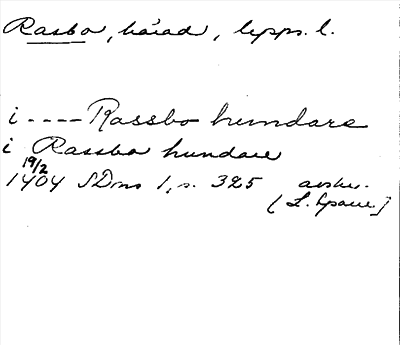 Rasbo, härad, Upps. l.
i ---- Rassbo hundare
i Rassbo hundare
19/2
1404 SDns 1, s. 325 avskr.